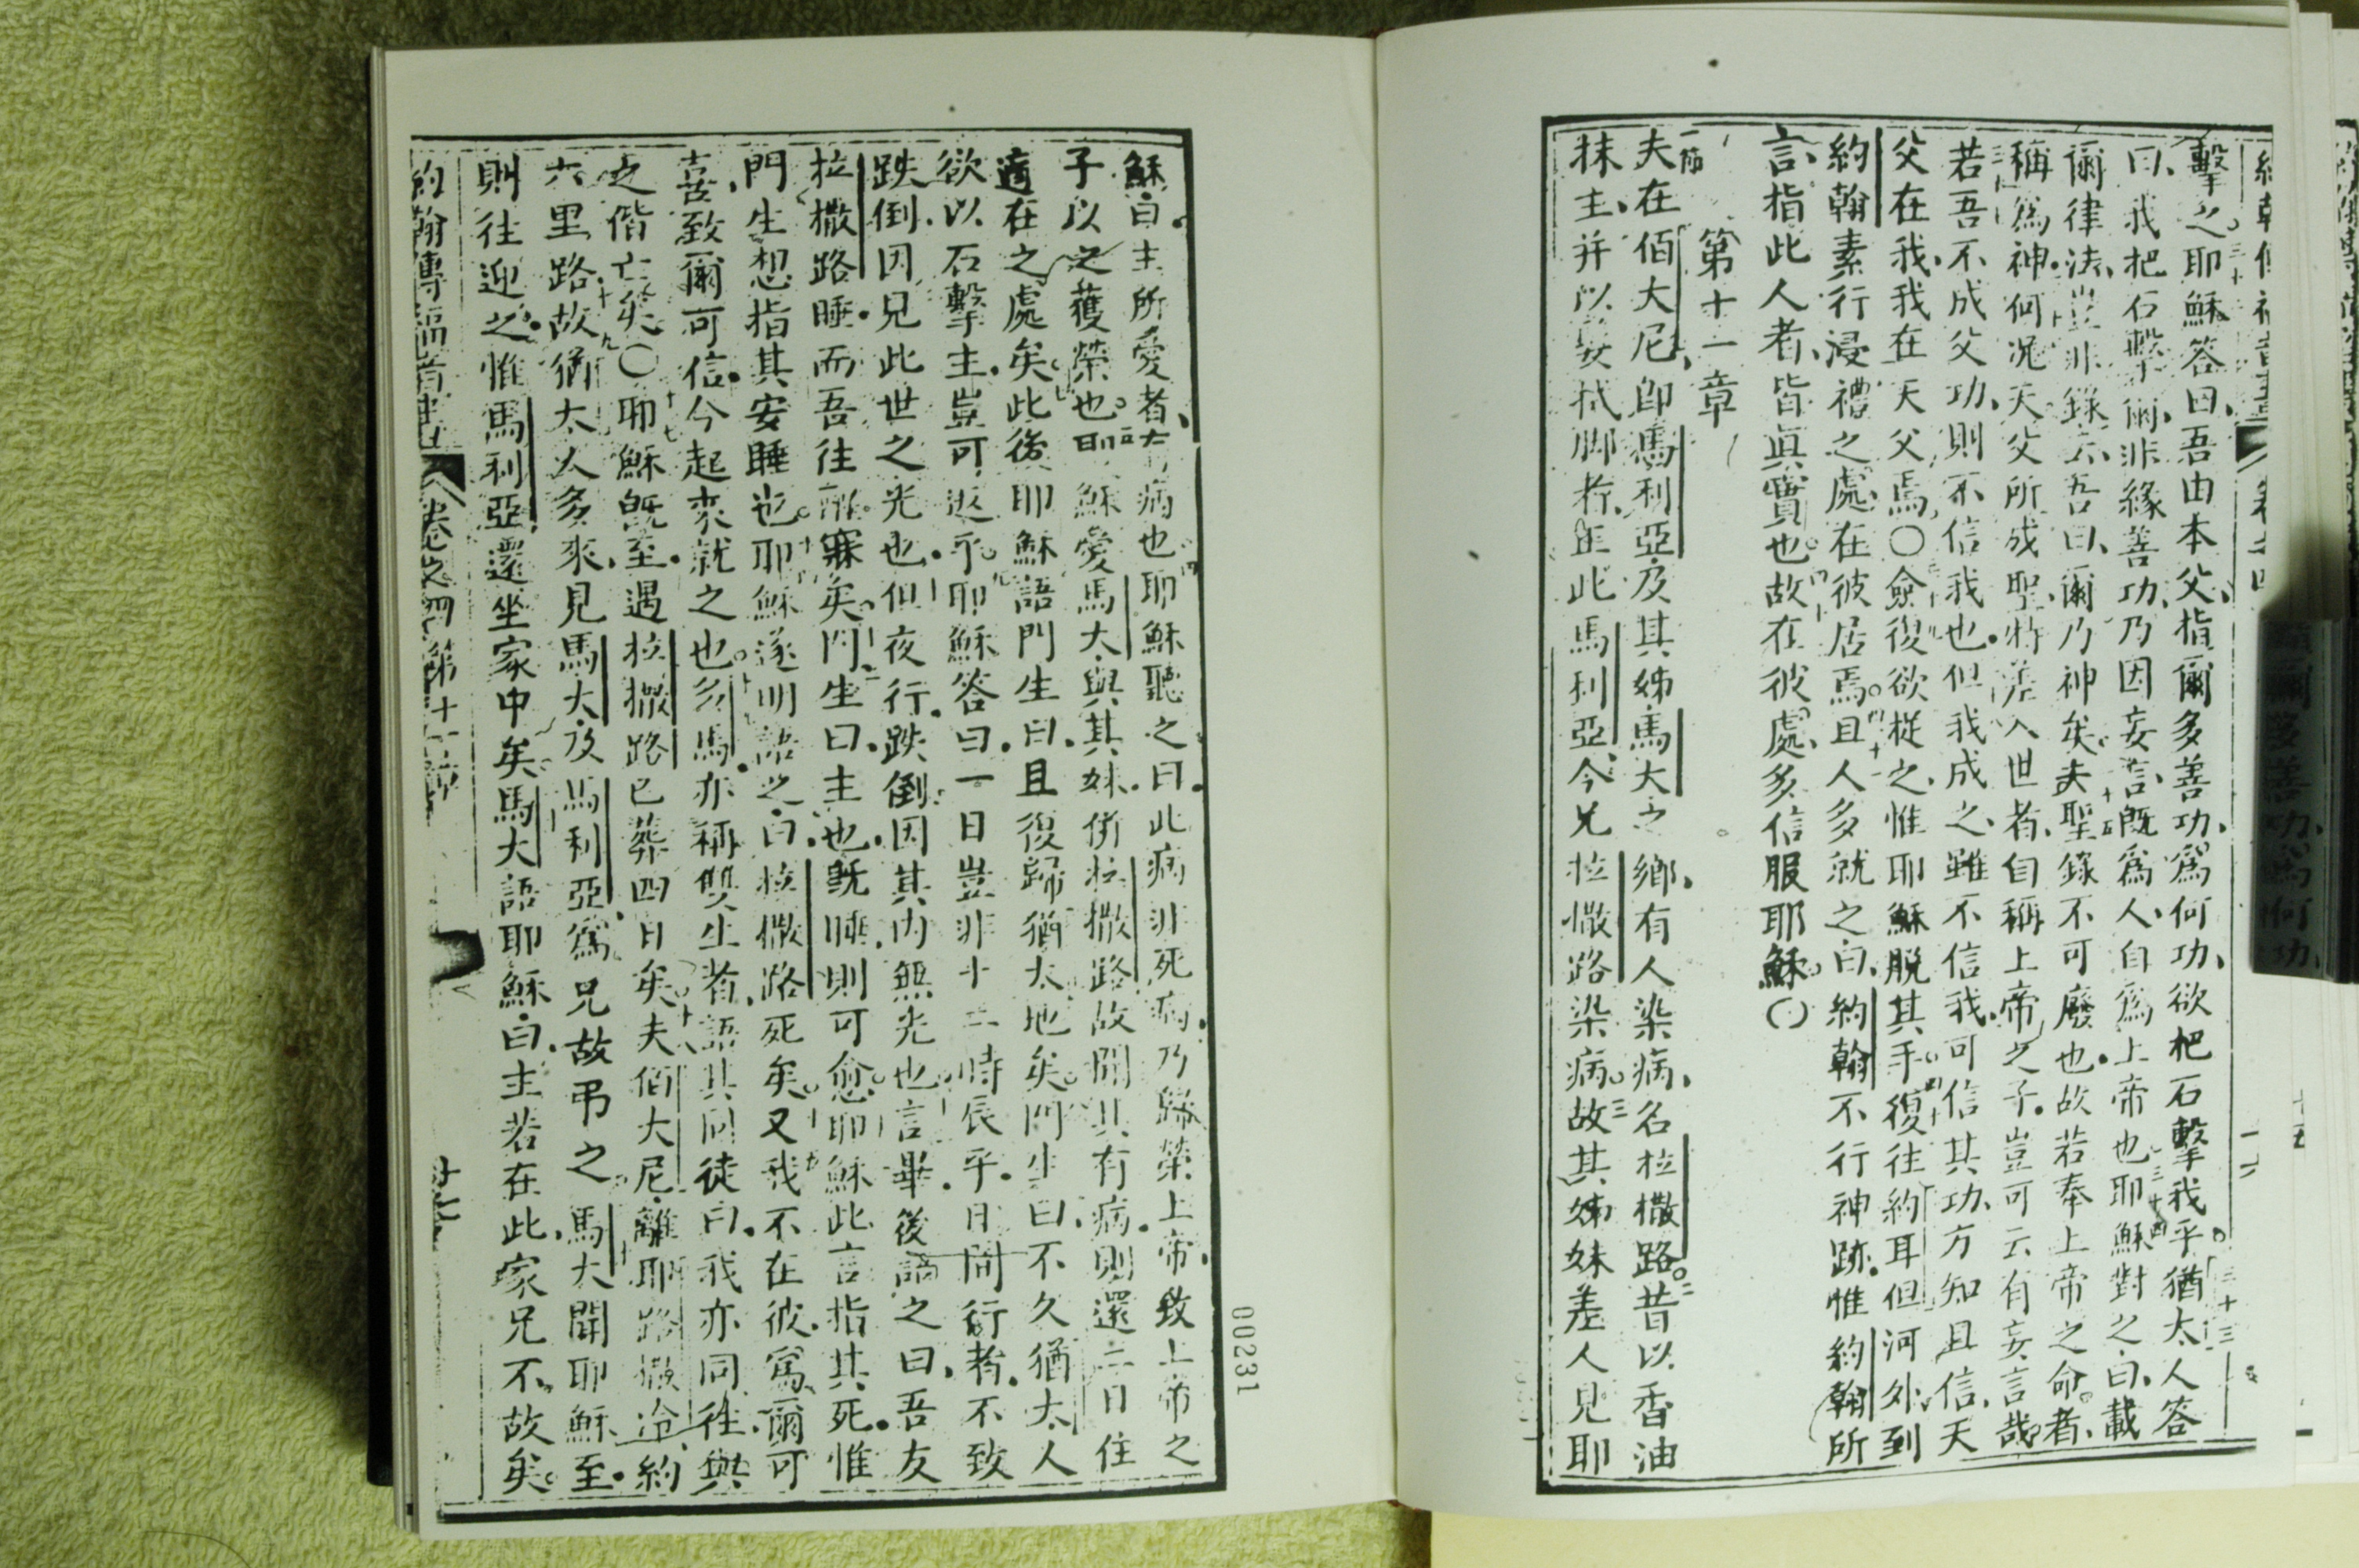 擊之耶穌答曰吾由本父指爾多善功爲何功欲把石擊我乎猶太人答
曰我把石擊爾非緣善功乃因妄言旣爲人自爲上帝也耶穌對之曰載
爾律法豈非錄云吾曰爾乃神矣夫聖錄不可廢也故若奉上帝之命者
稱爲神何况天父所成聖特差入世者自稱上帝之子豈可云有妄言哉
若吾不成父功則不信我也但我成之雖不信我可信其功方知且信天
父在我我在天父焉〇僉復欲捉之惟耶穌脫其手復往約耳但河外到
約翰素行浸禮之處在彼居焉且人多就之曰約翰不行神跡惟約翰所
言指此人者皆眞實也故在彼處多信服耶穌〇
第十一章
一節
夫在佰大尼卽馬利亞及其姊馬大之鄉有人染病名拉撒路昔以香油
抹主并以髮拭脚者正此馬利亞今兄拉撒路染病故其姊妹差人見耶
穌曰主所愛者有病也耶穌聽之曰此病非死病乃歸榮上帝致上帝之
子以之獲榮也耶穌愛馬大與其妹併拉撒路故聞其有病則還二日住
適在之處矣此後耶穌語門生曰且復歸猶太地矣門生曰不久猶太人
欲以石擊主豈可返乎耶穌答曰一日豈非十二時辰乎日間行者不致
跌倒因見此世之光也但夜行跌倒因其內無光也言畢後謂之曰吾友
拉撒路睡而吾往醒寐矣門生曰主也旣睡則可愈耶穌此言指其死惟
門生想指其安睡也耶穌遂明語之曰拉撒路死矣又我不在彼爲爾可
喜致爾可信今起來就之也多馬亦稱雙生者語其同徒曰我亦同往與
之偕亡矣〇耶穌旣至遇拉撒路已葬四日矣夫佰大尼離耶路撒冷約
六里路故猶太人多來見馬大及馬利亞爲兄故弔之馬大聞耶穌至
則往迎之惟馬利亞還坐家中矣馬大語耶穌曰主若在此家兄不故矣
約翰傳福音書 卷之四 第十一章
00231